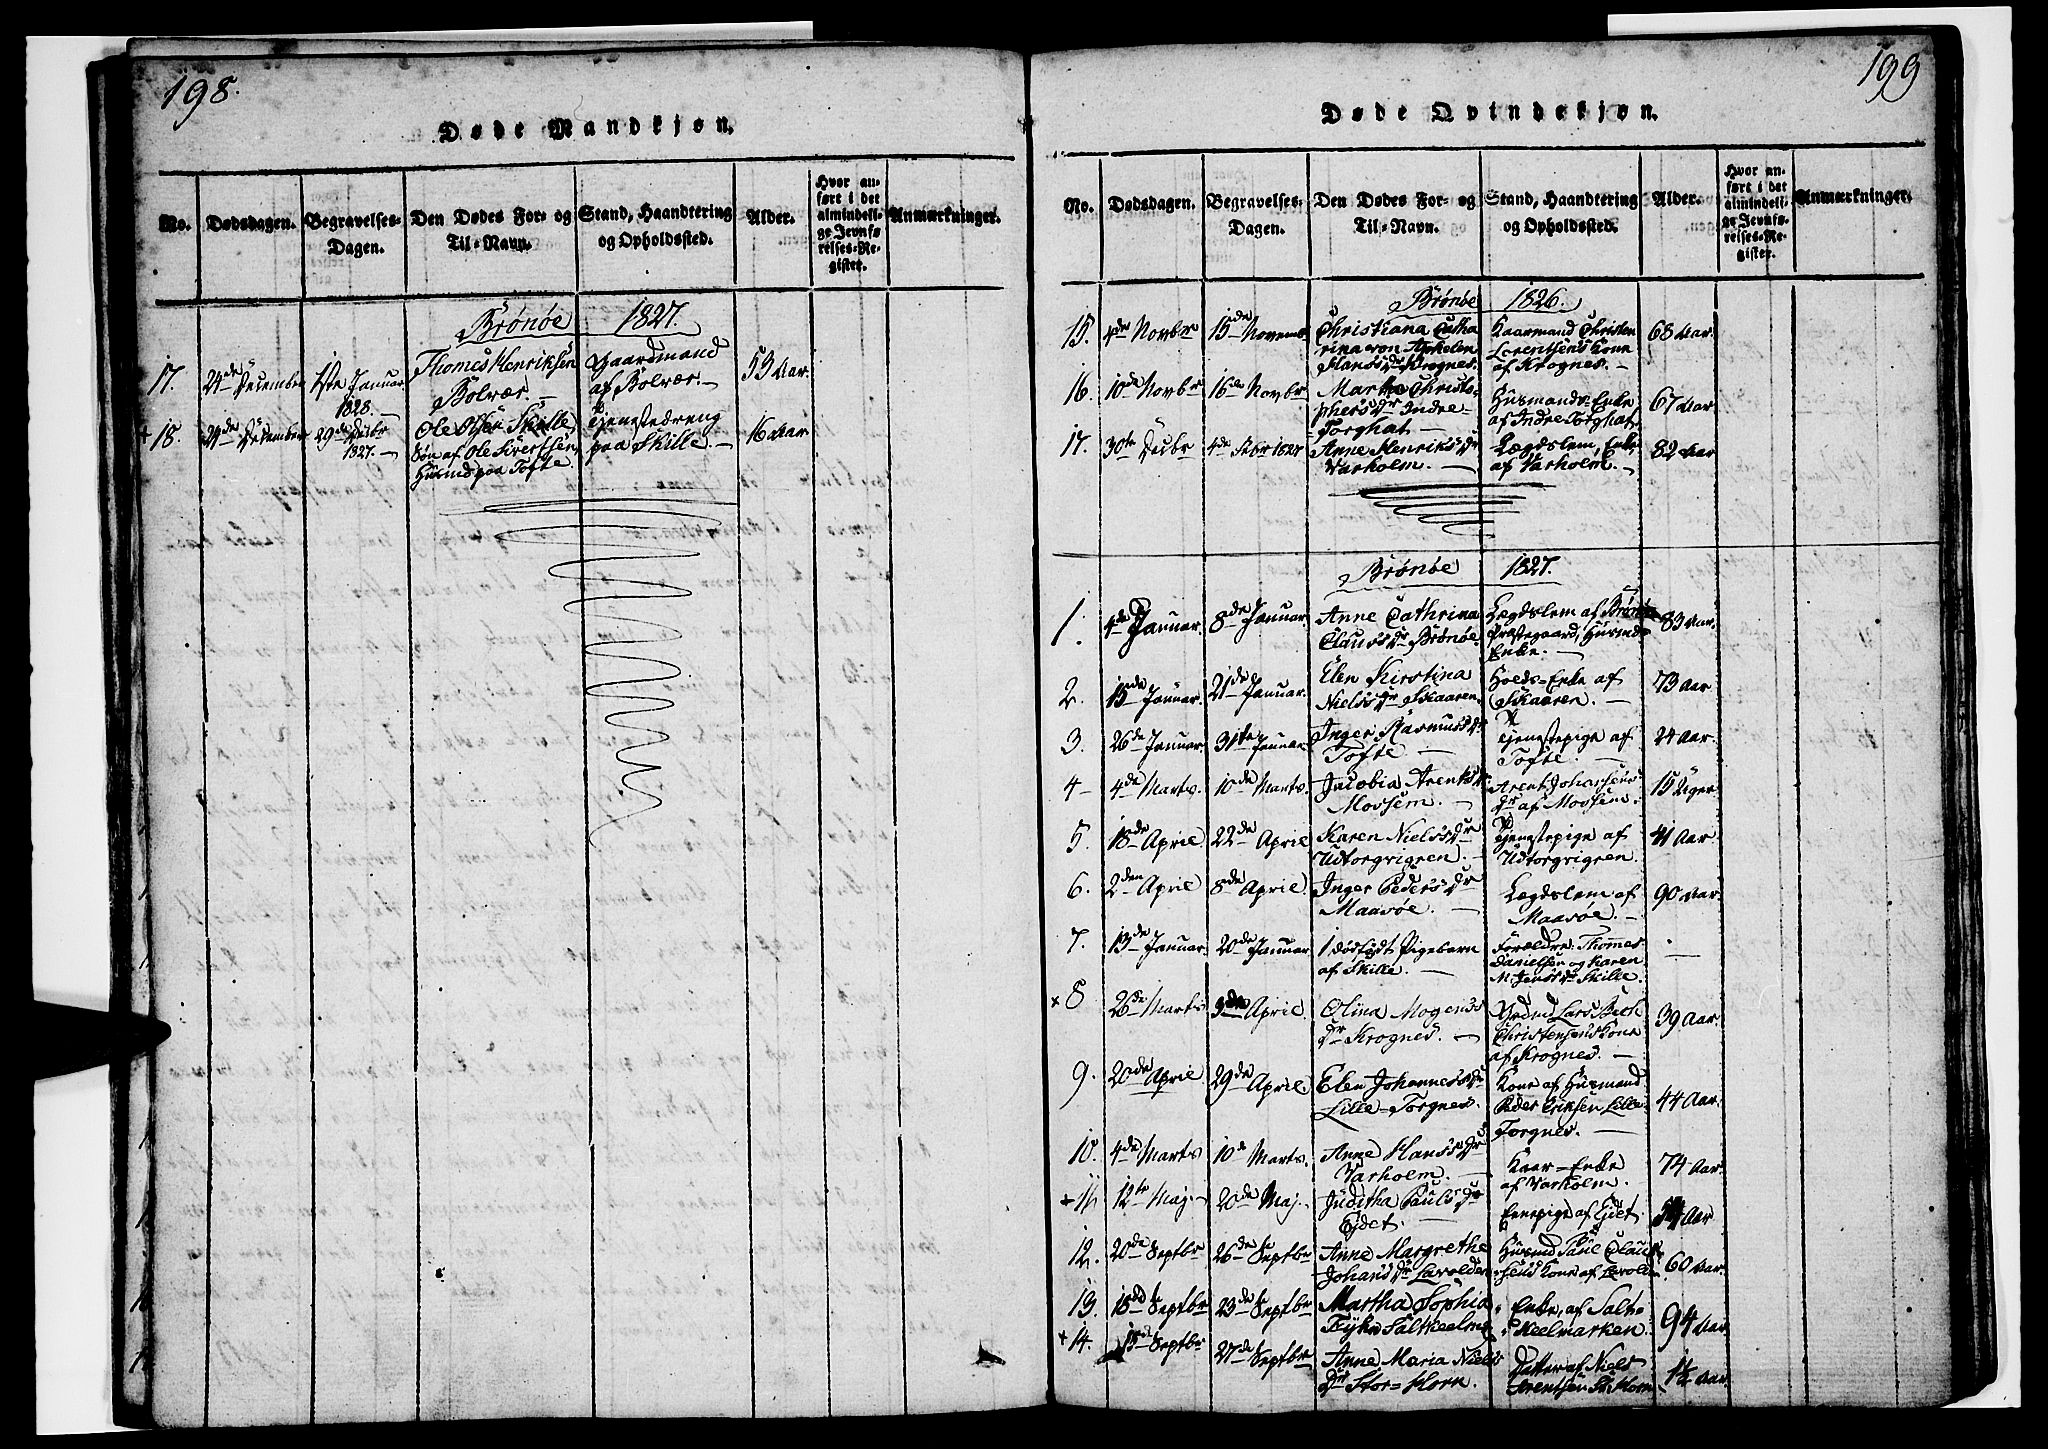 198.
Døde Mandkjøn.
No.
Dødsdagen.
Begravelses-
Dagen.
Den Dødes For- og
Til-Navn.
Stand, Haandtering
og Opholdssted.
Alder.
Hvor an-
ført i det
almindeli-
ge Jevnfø-
relses-Re-
gister.
Anmærkninger.
Brønøe 1827.
17. 24de December 1ste Januar 1828. Thomes Henriksen Bolvær. Gaardmand af Bolvær. 53 Aar.
+ 18. 24de December 29de Decbr 1827. Ole Olsen Skille, Søn af Ole Sivertsen, Husmd paa Tofte. Tjenestedreng paa Skille. 16 Aar.
199
Døde Qvindekjøn.
No.
Dødsdagen.
Begravelses-
Dagen.
Den Dødes For- og
Til-Navn.
Stand, Haandtering
og Opholdssted.
Alder.
Hvor an-
ført i det
almindeli-
ge Jevnfø-
relses-Re-
gister.
Anmærkninger.
Brønøe 1826.
15. 4de Novbr 15de Novemb. Christiana Catha rina von Aphelen Hanssdr Krognes. Kaarmand Christen Lorentsens Kone af Krognes. 68 Aar.
16. 10de Novbr 16de Novbr Martha Christo- phersdr Indre- Torghat. Husmands-Enke af Indre Torghat 67 Aar.
17. 30te Decbr 4de Febr 1827 Anne Henriksdr Varholm. Lægdslem, Enke af Varholm. 82 Aar
Brønøe 1827.
1. 4de Januar. 8de Januar. Anne Cathrina Clausdr Brønøe. Lægdslem af Brønøe Præstegaard, Husmds Enke. 83 Aar.
2. 15de Januar. 21de Januar. Elen Kirstina Nielsdr Skaaren. Enke af Skaaren. 73 Aar
3. 26de Januar. 31te Januar. Inger Rasmusdr Tofte. Tjenestepige af Tofte. 24 Aar.
4 4de Marts. 10de Marts. Jacobia Arentsdr Mossem. Arent Johansens Dr af Mossem. 15 Uger
5. 18de April 22de April Karen Nielsdr Udtorgrigren. Tjenestepige af Udtorgrigren. 41 Aar.
6. 2den April 8de April. Inger Pedersdr Maasøe. Lægdslem af Maasøe. 90 Aar.
7. 13de Januar. 20de Januar 1 dødfødt Pigebarn af Skille. Forældre: Thommes Danielsen og Karen M. Jensdr Skille.
× 8 26de Marts 3de April. Olina Mogens dr Krognes. Lars Bech Christensens Kone af Krognes. 39 Aar.
9. 20de April 29de April. Elen Johannesdr Lille-Torgnes. Kone af Husmand Peder Eriksen Lille- Torgnes. 44 Aar.
10. 4de Marts 10de Marts. Anne Hansdr Varholm. Kaar-Enke af Varholm. 74 Aar.
+ 11 12te Maj. 20de Maj. Juditha Paulsdr Ejdet. af Ejdet. Aar
12. 20de Septbr 26de Septbr Anne Margrethe Johansdr Husmd Paul Clau- sens Kone af 60 Aar.
13. 15de Septbr 23de Septbr Martha Sophia Saltkeelm. Enke, af Salt- keelmarken. 94 Aar
+ 14. 15de Septbr 27de Septbr Anne Maria Niels dr Stor-Horn. Datter af Niels Arentsen St. Horn Aar.